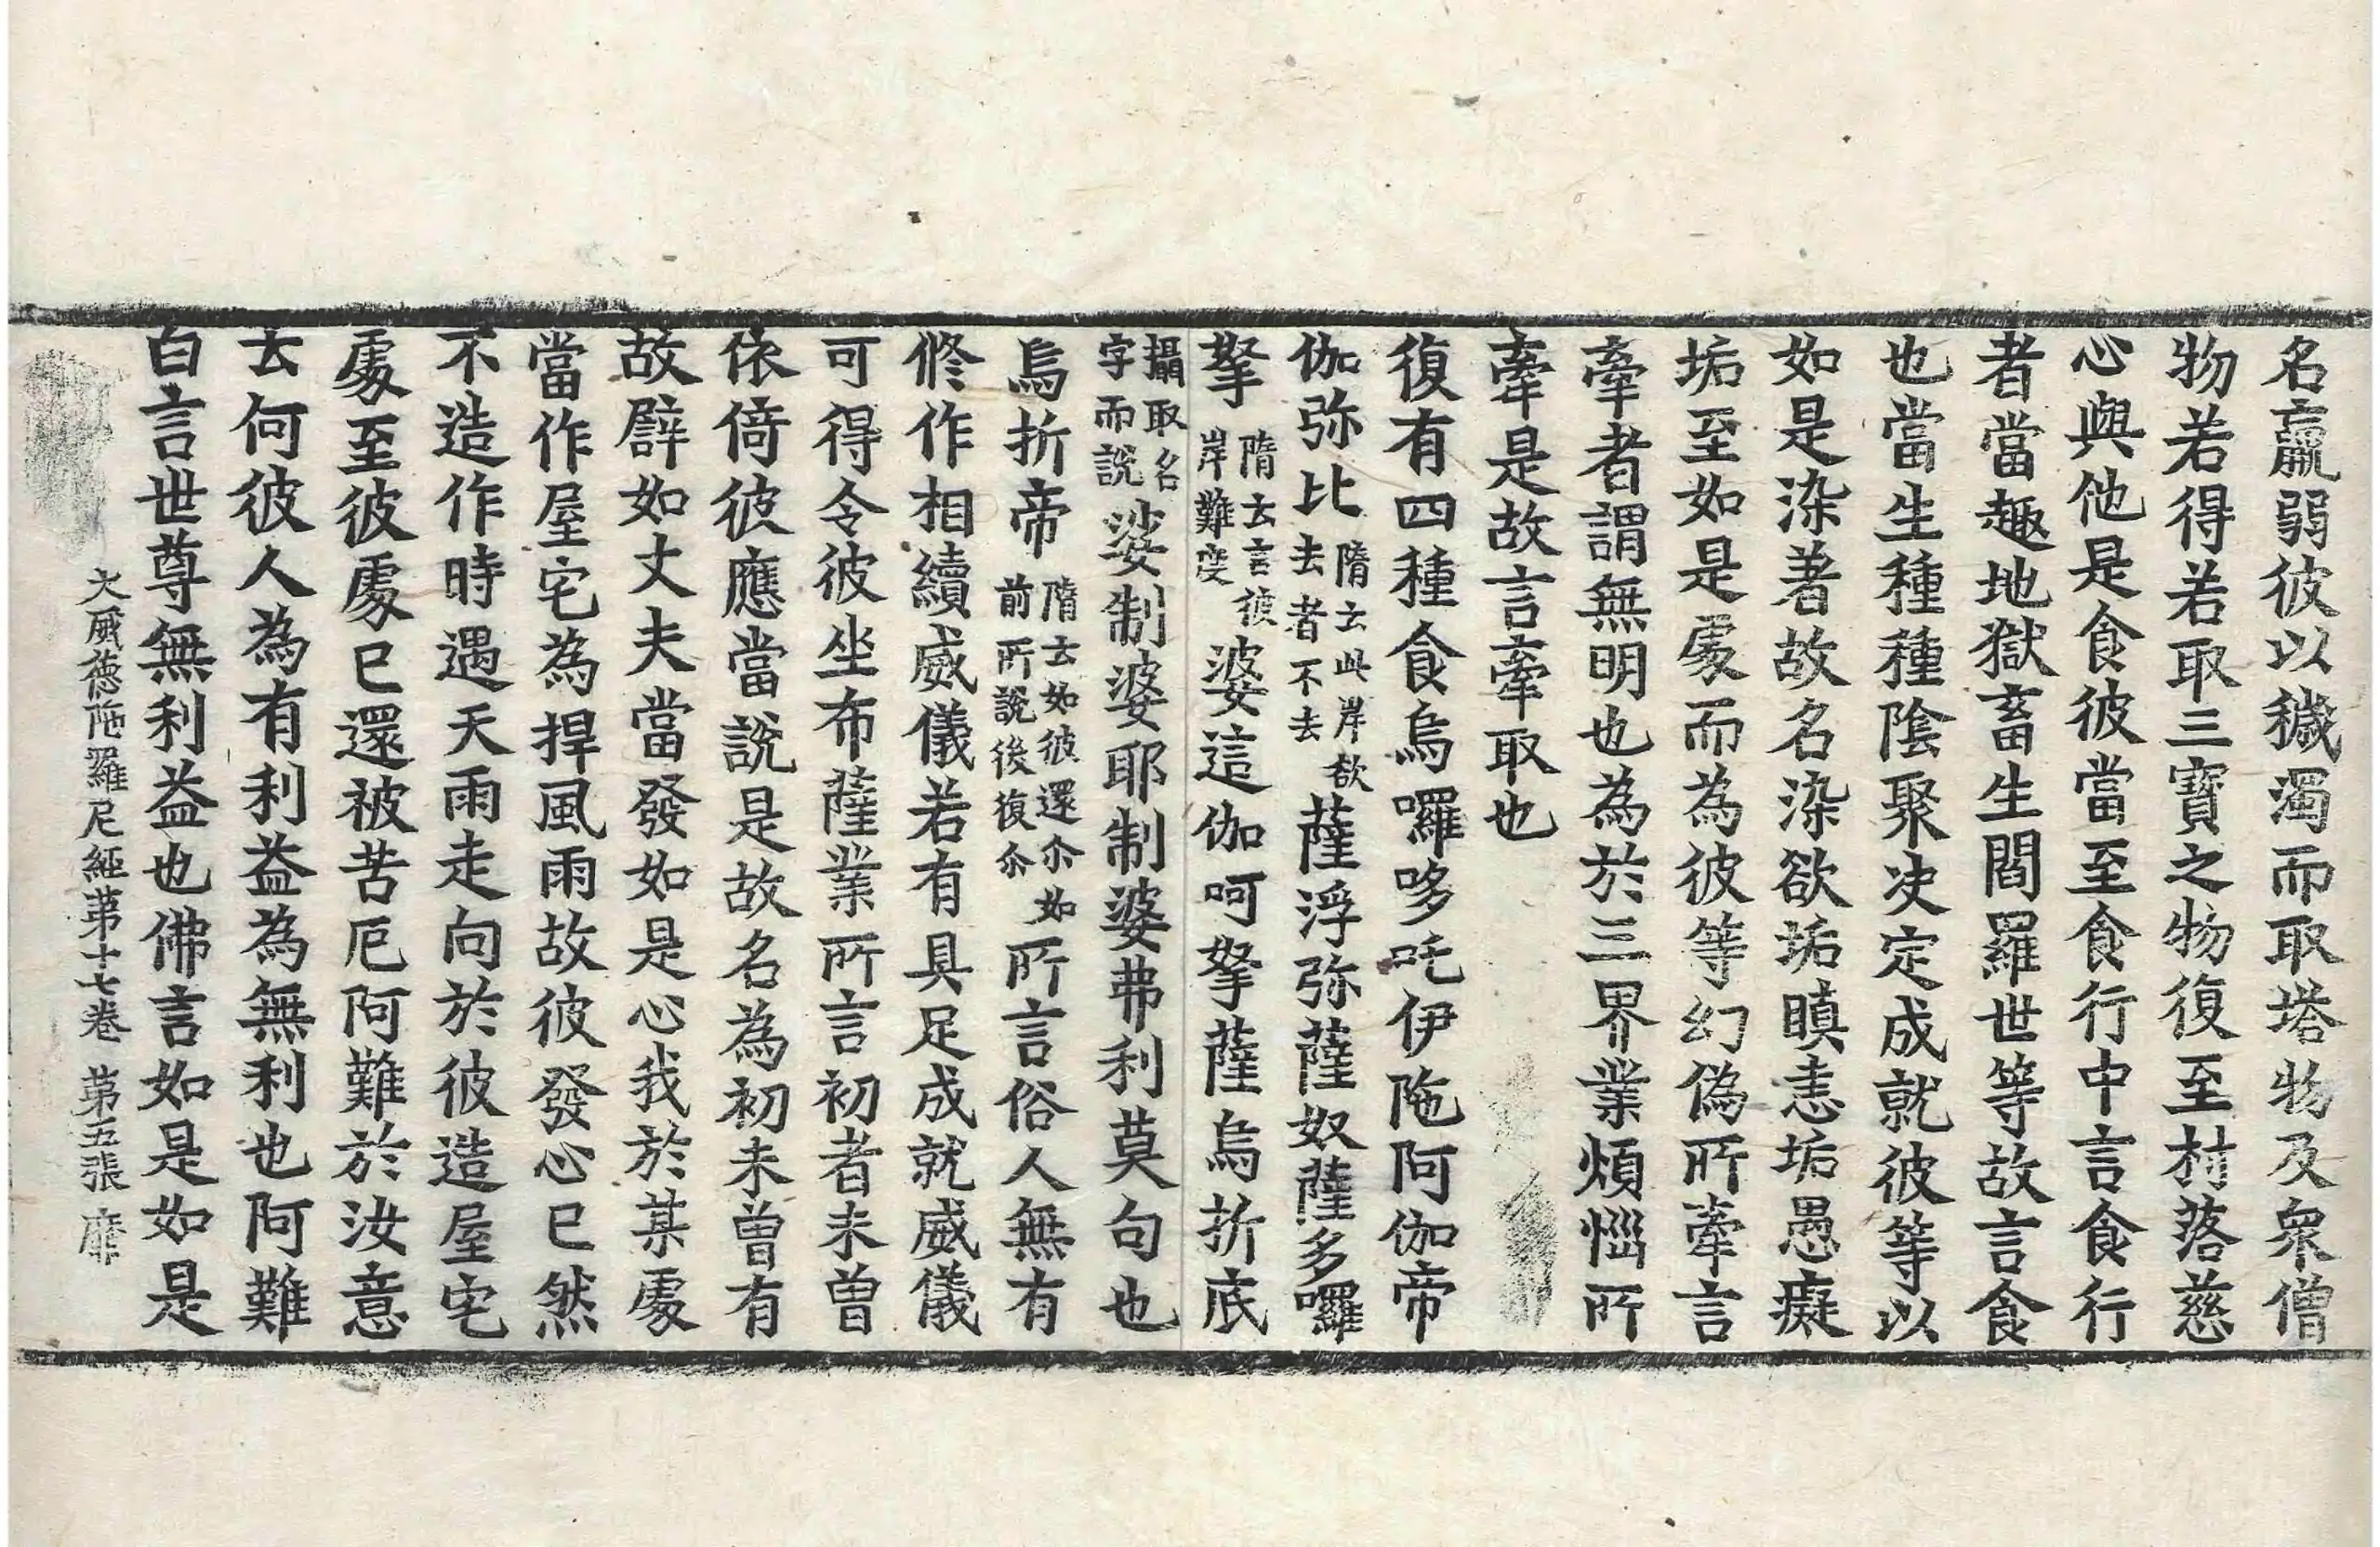 名羸弱彼以穢濁而取塔物及衆僧
物若得若取三寶之物復至村落慈
心與他是食彼當至食行中言食行
者當趣地獄畜生閻羅世等故言食
也當生種種陰聚决定成就彼等以
如是染著故名染欲垢瞋恚垢愚癡
垢至如是處而為彼等幻偽所牽言
牽者謂無明也為於三界業煩惱所
牽是故言牽取也
復有四種食烏囉哆吒伊陁阿伽帝
伽弥比隋云此岸欲去者不去薩浮弥薩奴薩多囉
拏隋云言彼岸難度婆這伽呵拏薩烏折底
攝取名字而說娑制婆耶制婆弗利莫句也
烏折帝隋云如彼還尒如前所說後復尒所言俗人無有
修作相續威儀若有具足成就威儀
可得令彼坐布薩業所言初者未曾
依倚彼應當說是故名為初未曾有
故譬如丈夫當發如是心我於某處
當作屋宅為捍風雨故彼發心已然
不造作時遇天雨走向於彼造屋宅
處至彼處已還被苦厄阿難於汝意
云何彼人為有利益為無利也阿難
白言世尊無利益也佛言如是如是
大威德陁羅尼經第十七卷 第五張 靡